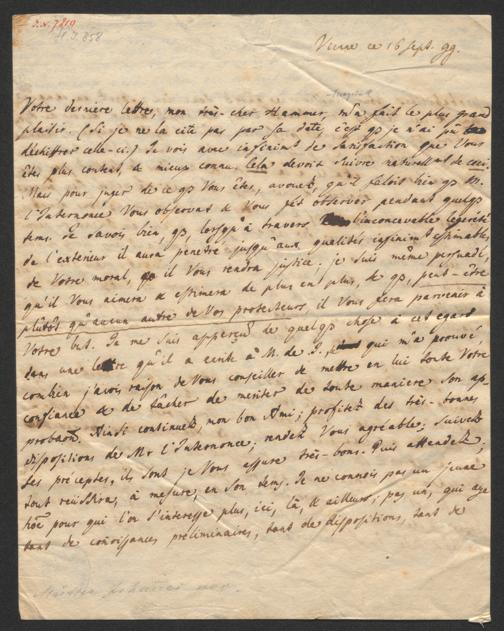 J.N. 7819
H.I. 858
Vienne ce 16 Sept. 99.
Votre derniere lettre, mon très-cher Hammer, m'a fait le plus grand
plaisir. (Si je ne la cite pas par sa date, c'est qs je n'ai pû
déchiffrer celle-ci.) Je vois avec infinimt de Satisfaction que Vous
êtes plus content, & mieux connu. Cela devroit suivre naturellmt de ceci.
Mais pour juger de ce qs Vous êtes, avouez, qu'il faloit bien qs M.
l'Internonce Vous observat & Vous fît observer pendant quelqs
tems. Je savois bien, qs, lorsqu'à travers l'inconcevable légéreté
de l'exterieur il aura penétré jusqu'aux qualités infinimt estimables
de Votre moral, il Vous rendra justice. je suis même persuadé,
qu'il Vous aimera & estimera de plus en plus, & qs, peut-être
plûtôt qu'aucun autre de Vos protecteurs, il Vous fera parvenir à
Votre but. Je me suis apperçu de quelqs chose à cet égard
dans une lettre qu'il a écrite à M. de J., qui m'a prouvé,
combien j'avois raison de Vous conseiller de mettre en lui toute Votre
confiance & de tâcher de meriter de toute maniere son ap-
probaon. Ainsi continuez, mon bon Ami; profitez des très-bonnes
dispositions de Mr l'Internonce; rendez Vous agréable; suivez
ses preceptes, ils sont je Vous assure très-bons. Puis attendez,
tout reussira, à mesure, en son tems. Je ne connois pas un jeune
hoe pour qui l'on s'interesse plus, ici, là, & ailleurs; pas un, qui aye
tant de coñoissances préliminaires, tant de dispositions, tant de